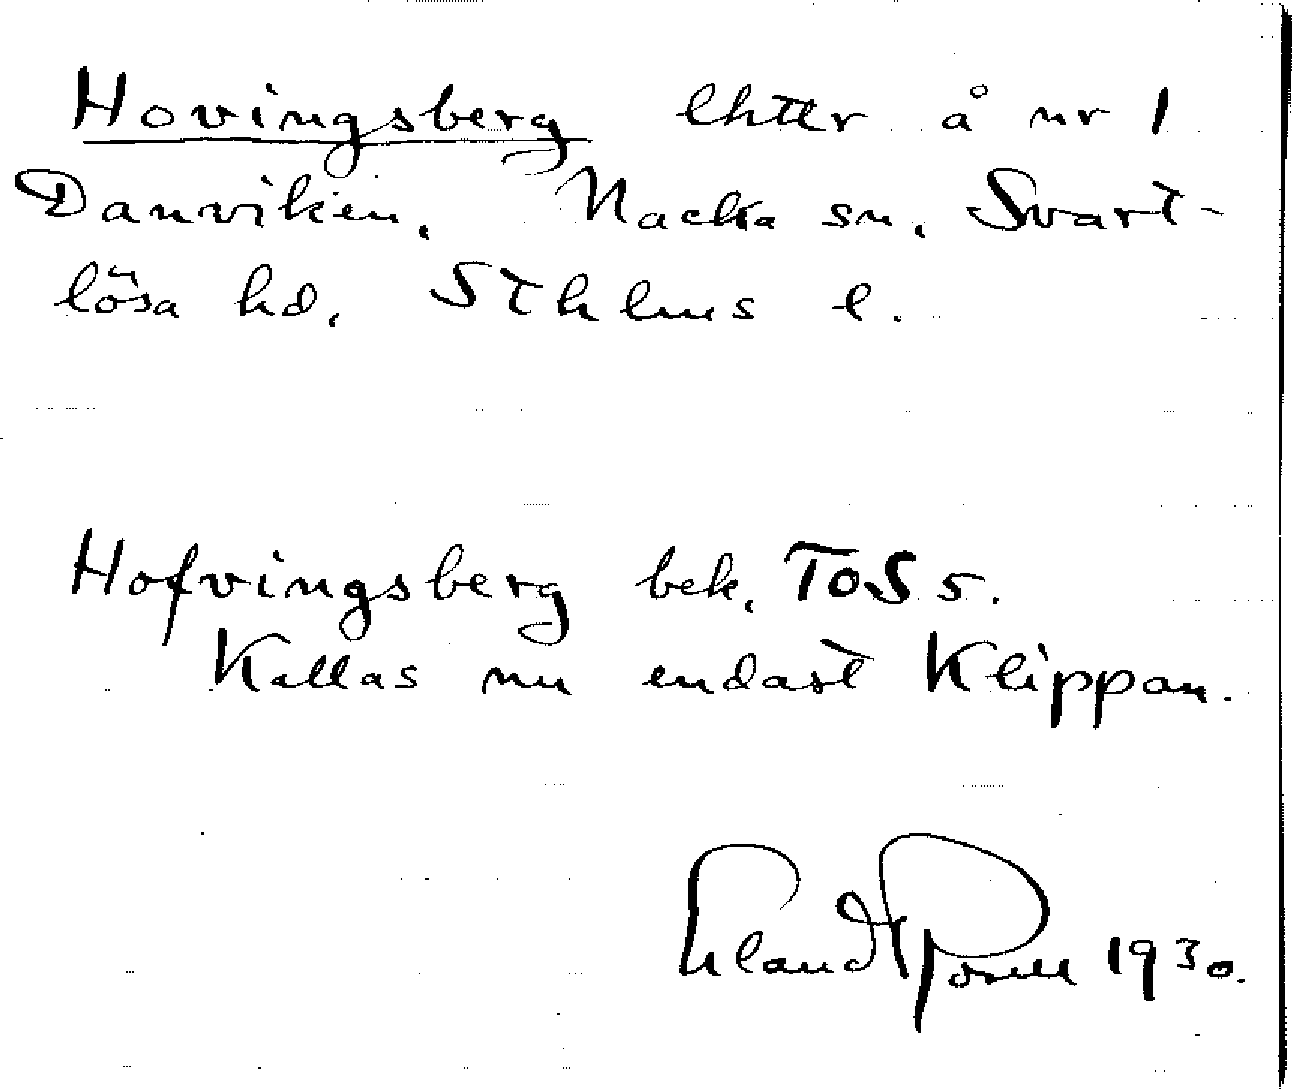 Hovingsberg lhtlr å nr 1
Danviken, Nacka sn, Svart-
lösa hd, Sthlms l.
Hofvingsberg bek. ToS 5.
Kallas nu endast Klippan.
Erland Rosell 1930.